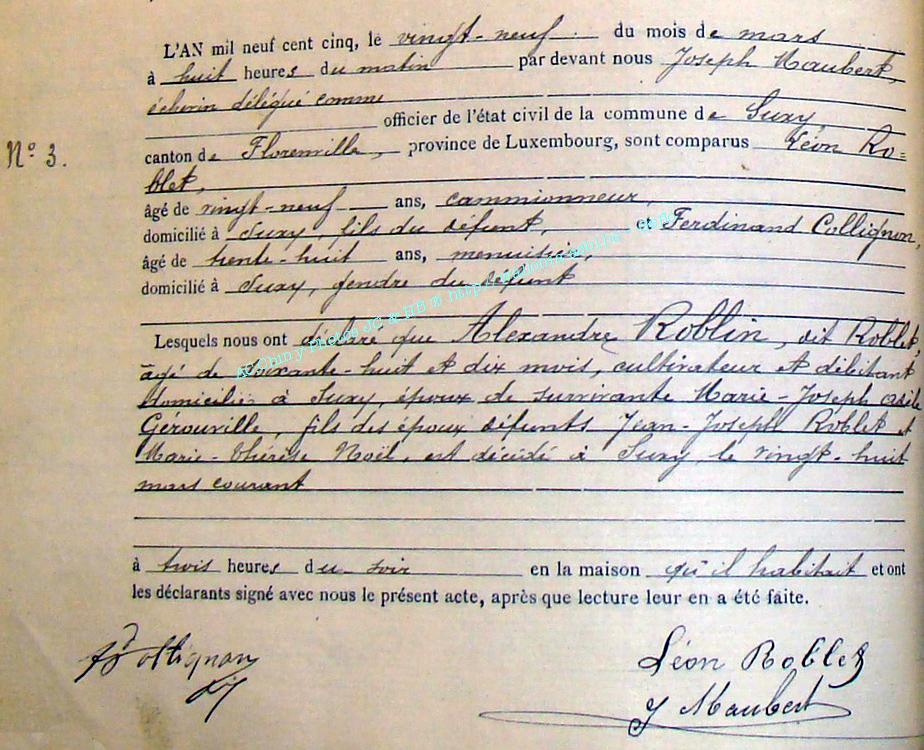 L'AN mil neuf cent cinq, le vingt-neuf du mois de mars
à huit heures du matin par devant nous Joseph Maubert,
échevin délégué comme
officier de l'état civil de la commune de Suxy
N° 3.
canton de Florenville, province de Luxembourg, sont comparus Léon Ro=
blet,
âgé de vingt-neuf ans, cammionneur,
domicilié à Suxy, fils du défunt, et Ferdinand Collignon
âgé de trente-huit ans, menuisier,
domicilié à Suxy, gendre du défunt
Lesquels nous ont déclaré que Alexandre Roblin, dit Roblet,
âgé de soixante-huit et dix mois, cultivateur et débitant
domicilié à Suxy, époux de survivante Marie-Joseph Odile
Gérouville, fils des époux défunts Jean-Joseph Roblet et
Marie-Thérèse Noël, est décédé à Suxy, le vingt-huit
mars courant
à trois heures du soir en la maison qu'il habitait et ont
les déclarants signé avec nous le présent acte, après que lecture leur en a été faite.
F Collignon
Léon Roblet
J Maubert